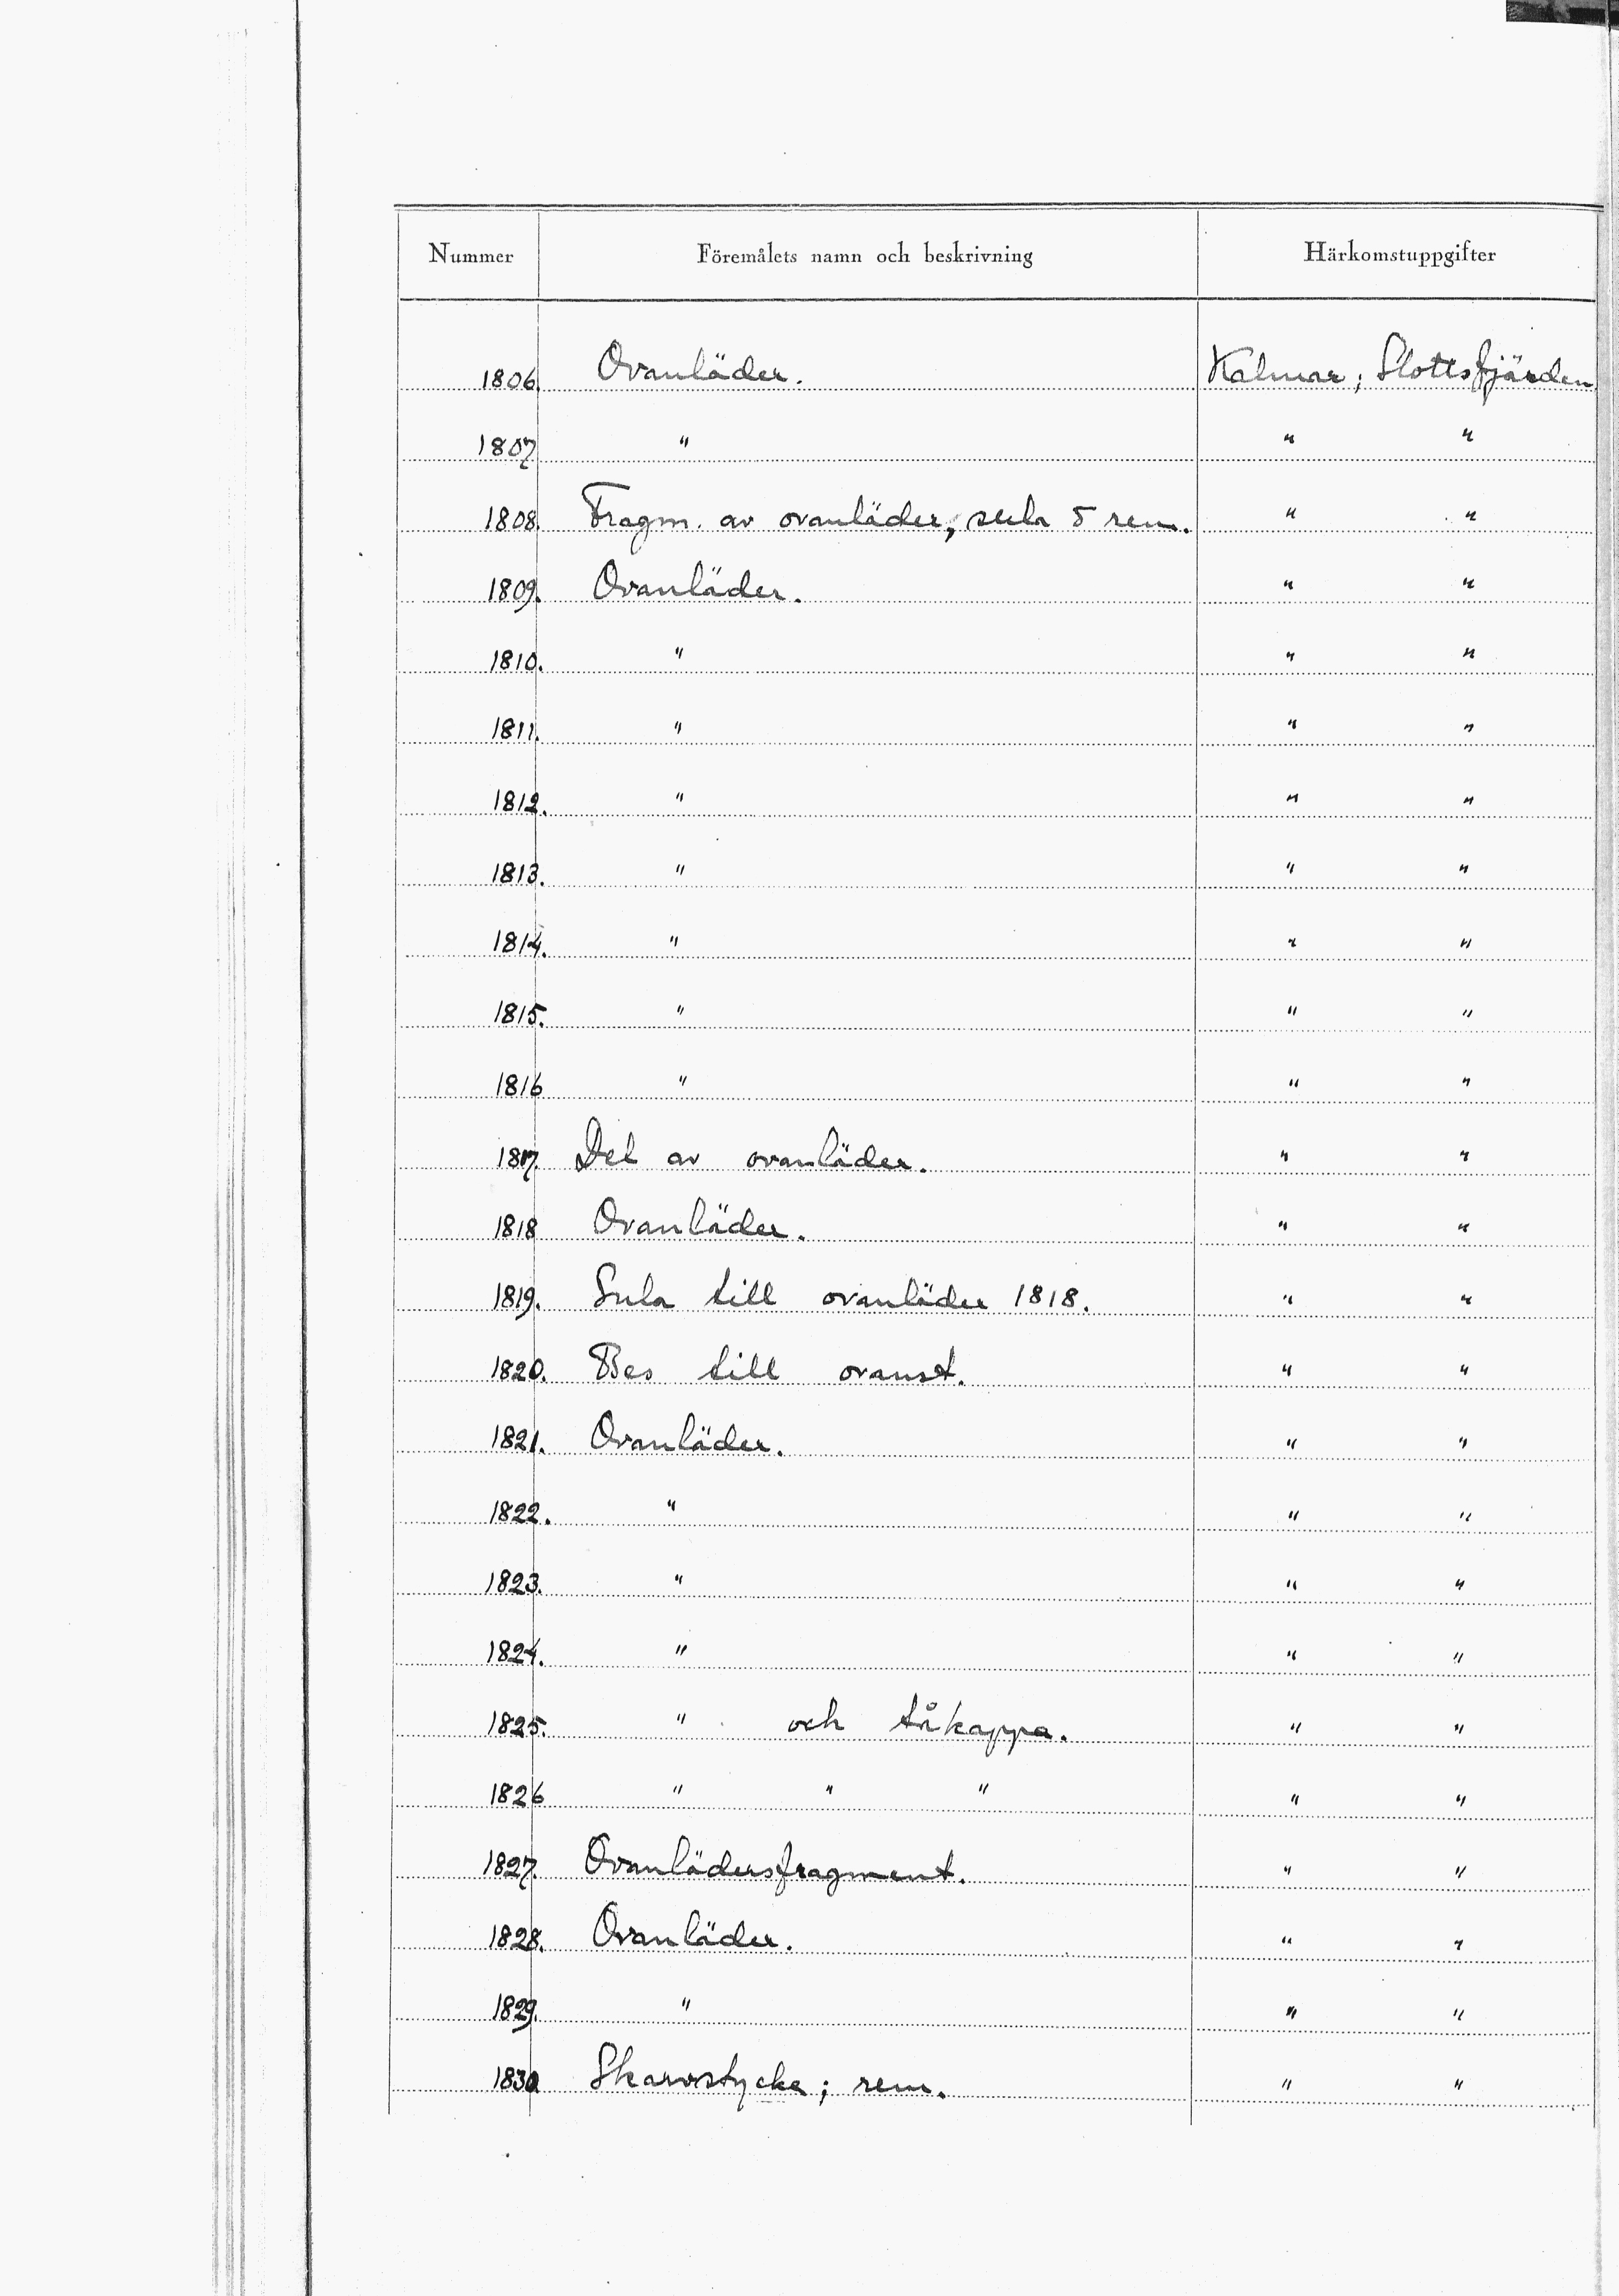 Nummer Föremålets namn och beskrivning Härkomstuppgifter
1806. Ovanläder. Kalmar; Slottsfjärden
1807 " " "
1808. Fragm. av ovanläder, sula o rem. " "
1809. Ovanläder. " "
1810. " " "
1811. " " "
1812. " " "
1813. " " "
1814. " " "
1815. " " "
1816 " " "
1817. Del av ovanläder. " "
1818 Ovanläder. " "
1819. Sula till ovanläder 1818. " "
1820. Bes till ovanst. " "
1821. Ovanläder. " "
1822. " " "
1823. " " "
1824. " " "
1825. " och tåkappa. " "
1826 " " " " "
1827. Ovanlädersfragment. " "
1828. Ovanläder. " "
1829. " " "
1830 Skarvstycke; rem. " "